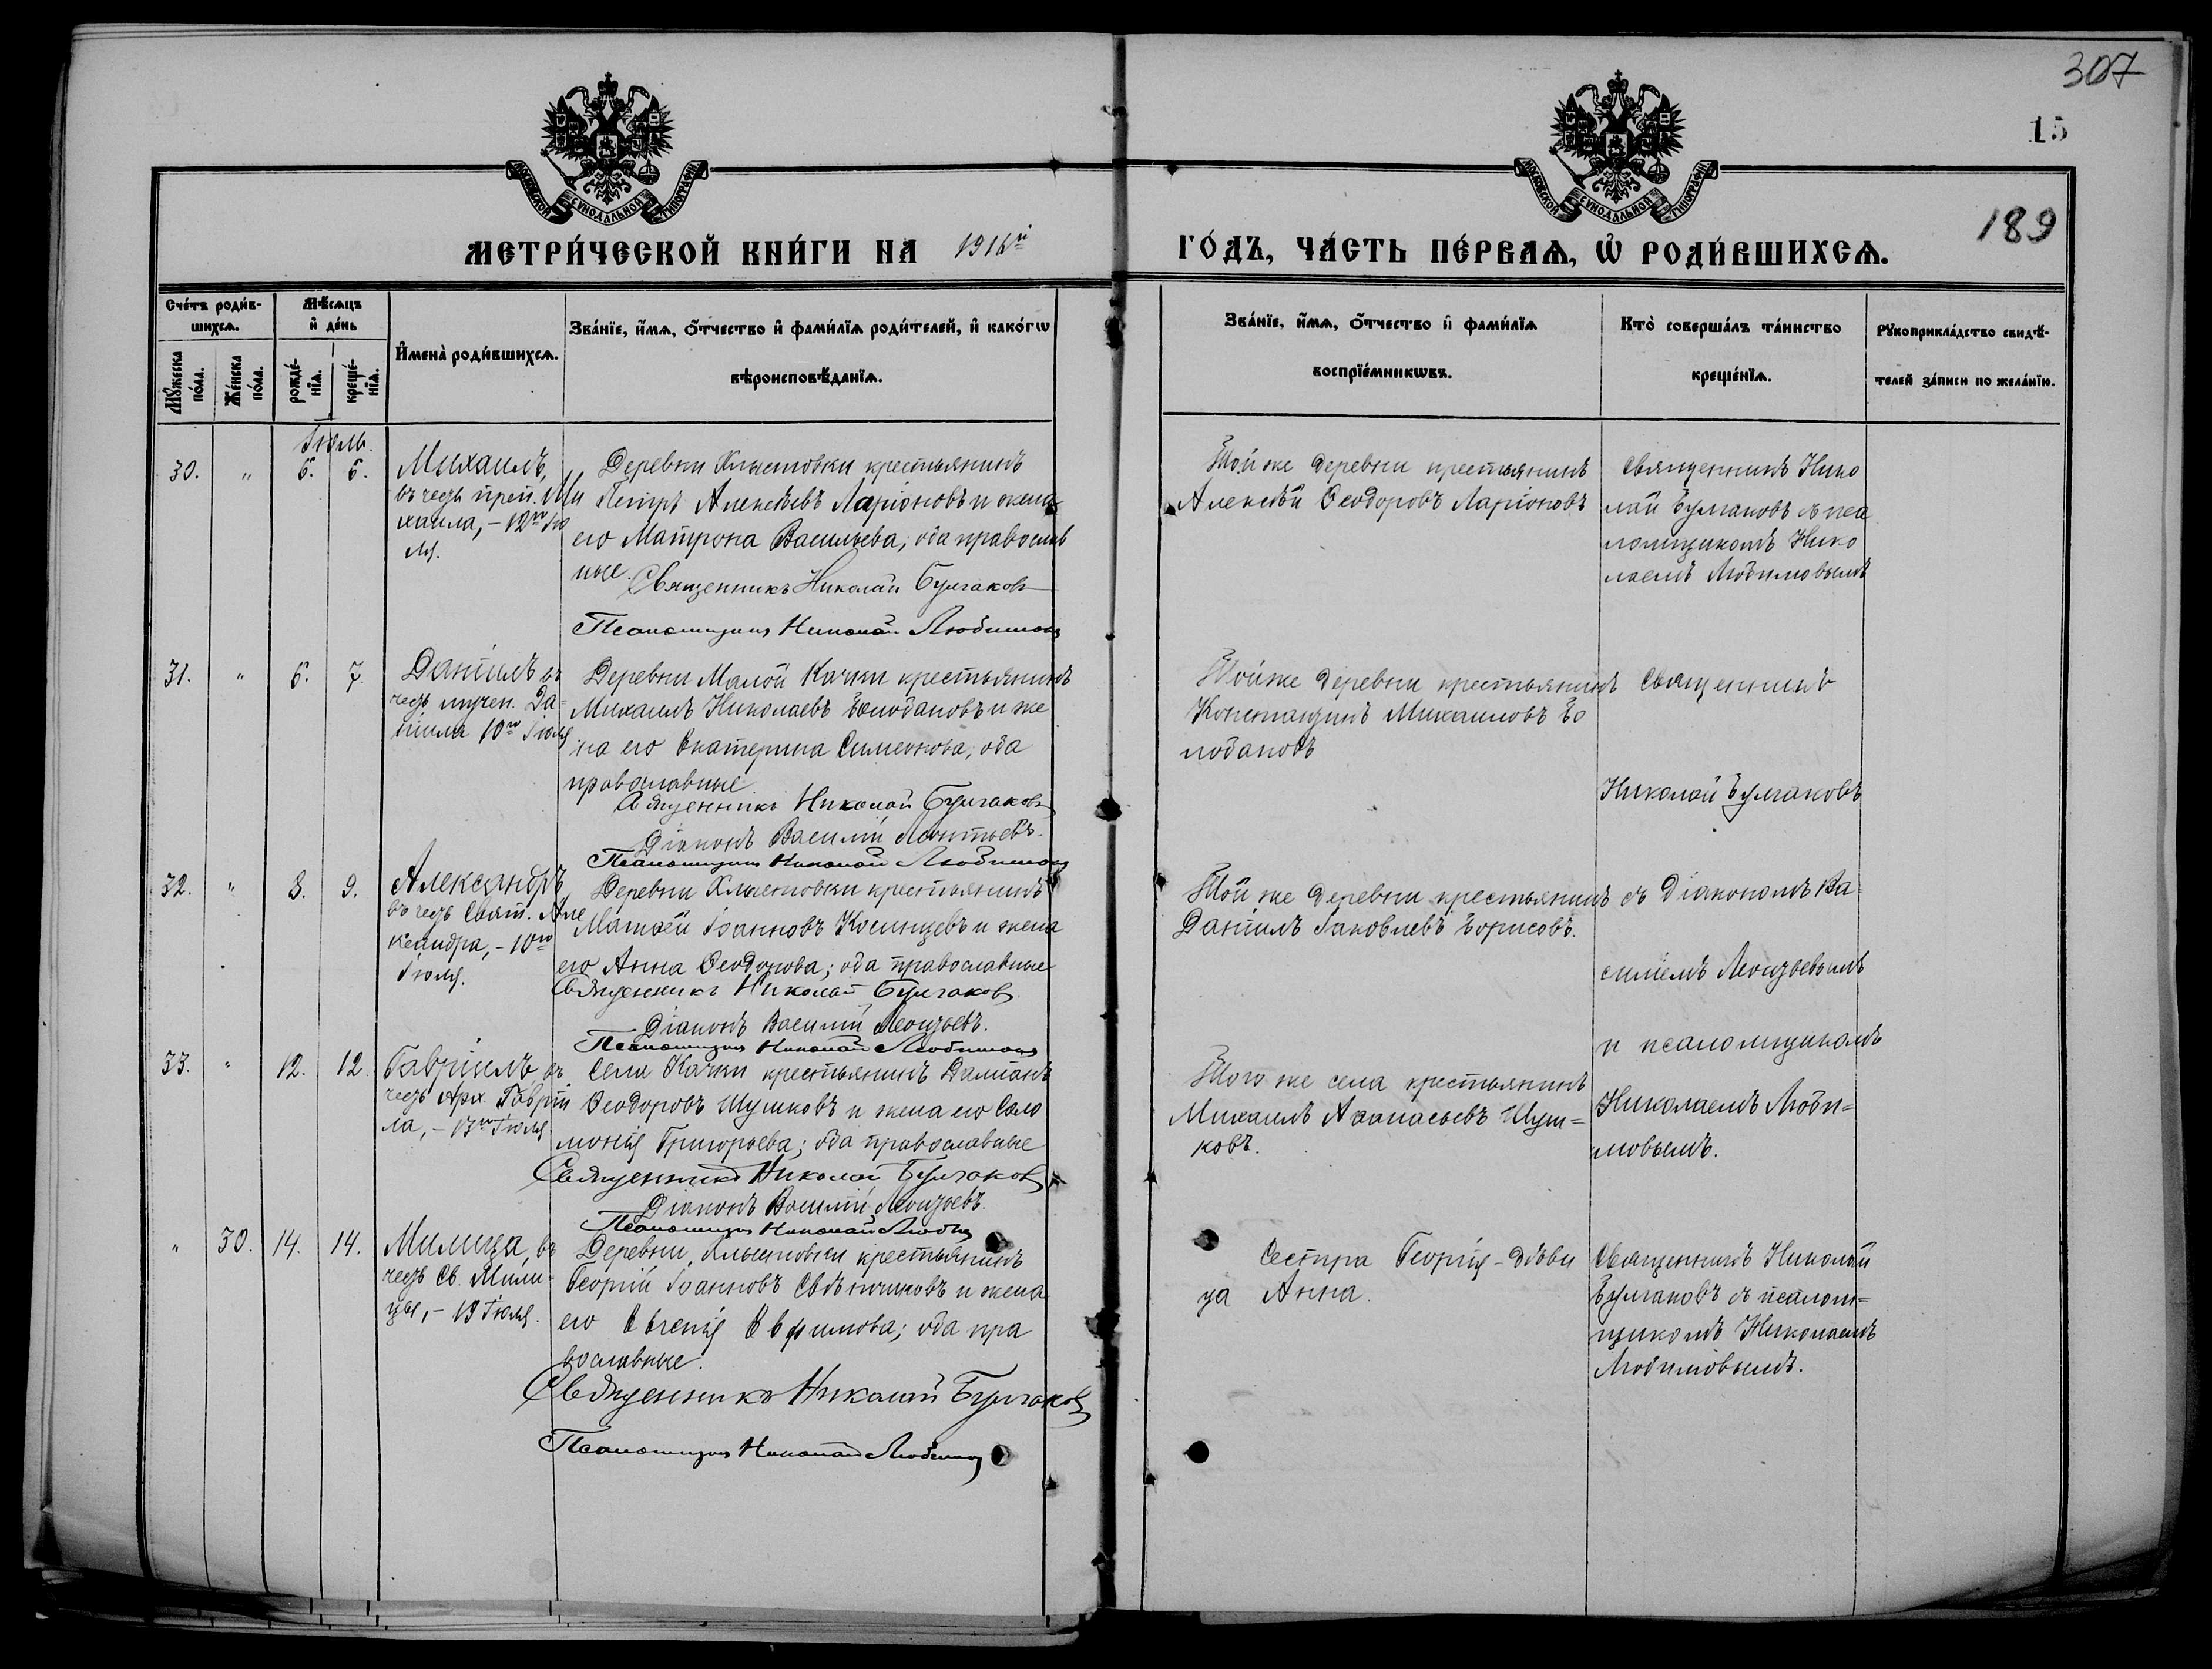 307
15
189
МОСКОВСКОЙ СУНОДАЛЬНОЙ ТИПОГРАФІИ
МОСКОВСКОЙ СУНОДАЛЬНОЙ ТИПОГРАФІИ
МЕТРИ́ЧЕСКОЙ КНИ́ГИ НА 191 й
ГО́ДЪ, ЧА́СТЬ ПЕ́РВАѦ, Ѡ҆ РОДИ́ВШИХСѦ.
Сче́тъ роди́в-
шихсѧ.
Мꙋ́жеска по́ла.
Же́нска по́ла.
Мѣ́сѧцъ
и҆ де́нь
рожде́-нїѧ.
креще́-нїѧ.
И҆мена̀ роди́вшихсѧ.
Зва́нїе, и҆́мѧ, ѻ҆́тчество и҆ фами́лїѧ роди́телей, и҆ како́гѡ
вѣроисповѣ́данїѧ.
Зва́нїе, и҆́мѧ, ѻ҆́тчество и҆ фами́лїѧ
воспрїе́мникѡвъ.
Кто̀ соверша́лъ та́инство
креще́нїѧ.
Рꙋкоприкла́дство свидѣ́-
телей за́писи по жела́нїю.
Іюль.
30. " 6. 6.
Михаилъ,
въ честь преп. Ми
хаила, – 12го Iю
ля.
Деревни Хлыстовки крестьянинъ
Петръ Алексѣевъ Ларіоновъ и жена
его Матрона Васильева, оба православ
ные.
Священникъ Николай Булгаковъ
Псаломщикъ Николай Любимовъ
Той же деревни крестьянинъ
Алексѣй Ѳеодоровъ Ларіоновъ
Священникъ Нико
лай Булгаковъ съ пса
ломщикомъ Нико
лаемъ Любимовымъ
31. " 6. 7.
Даніилъ въ
честь мучен. Да-
ніила 10го Іюля
Деревни Малой Качки крестьянинъ
Михаилъ Николаевъ Болодановъ и же
на его Екатерина Симеонова, оба
православные
Священникъ Николай Булгаковъ
Діаконъ Василій Леонтьевъ.
Псаломщикъ Николай Любимовъ
Той же деревни крестьянинъ
Константинъ Михаиловъ Бо
лодановъ
Священникъ
Николай Булгаковъ
32. " 8. 9.
Александръ
въ честь Свят. Але
ксандра, – 10го
Іюля.
Деревни Хлыстовки крестьянинъ
Матѳей Іоанновъ Косинцевъ и жена
его Анна Ѳеодорова; оба православные
Священникъ Николай Булгаковъ
Діаконъ Василій Леонтьевъ.
Псаломщикъ Николай Любимовъ
Той же деревни крестьянинъ
Даніилъ Іаковлевъ Борисовъ.
съ Діакономъ Ва-
силіемъ Леонтьевымъ
и псаломщикомъ
Николаемъ Люби=
мовымъ.
33. " 12. 12.
Гавріилъ въ
честь Арх. Гавріи
ла, – 13го Іюля
Села Качки крестьянинъ Даміанъ
Ѳеодоровъ Шушковъ и жена его Соло
монія Григорьева; оба православные
Священникъ Николай Булгаковъ
Діаконъ Василій Леонтьевъ.
Псаломщикъ Николай Любимовъ
Того же села крестьянинъ
Михаилъ Аѳанасьевъ Шуш=
ковъ.
" 30. 14. 14.
Милица, въ
честь Св. Мили-
цы, – 19 Іюля.
Деревни Хлыстовки крестьянинъ
Георгій Іоанновъ Свѣтичковъ и жена
его Евгенія Евфимова; оба пра
вославные.
Священникъ Николай Булгаковъ
Псаломщикъ Николай Любимовъ
Сестра Георгія – дѣви
ца Анна.
Священникъ Николай
Булгаковъ съ псалом=
щикомъ Николаемъ
Любимовымъ.